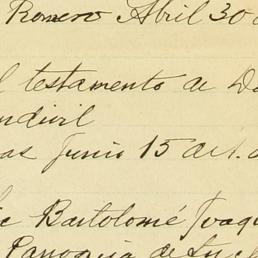 Romero Abril 30
testamento de
ndivil
as Junio 15 de 1.
Bartolomé Joaqu
Parroquia de